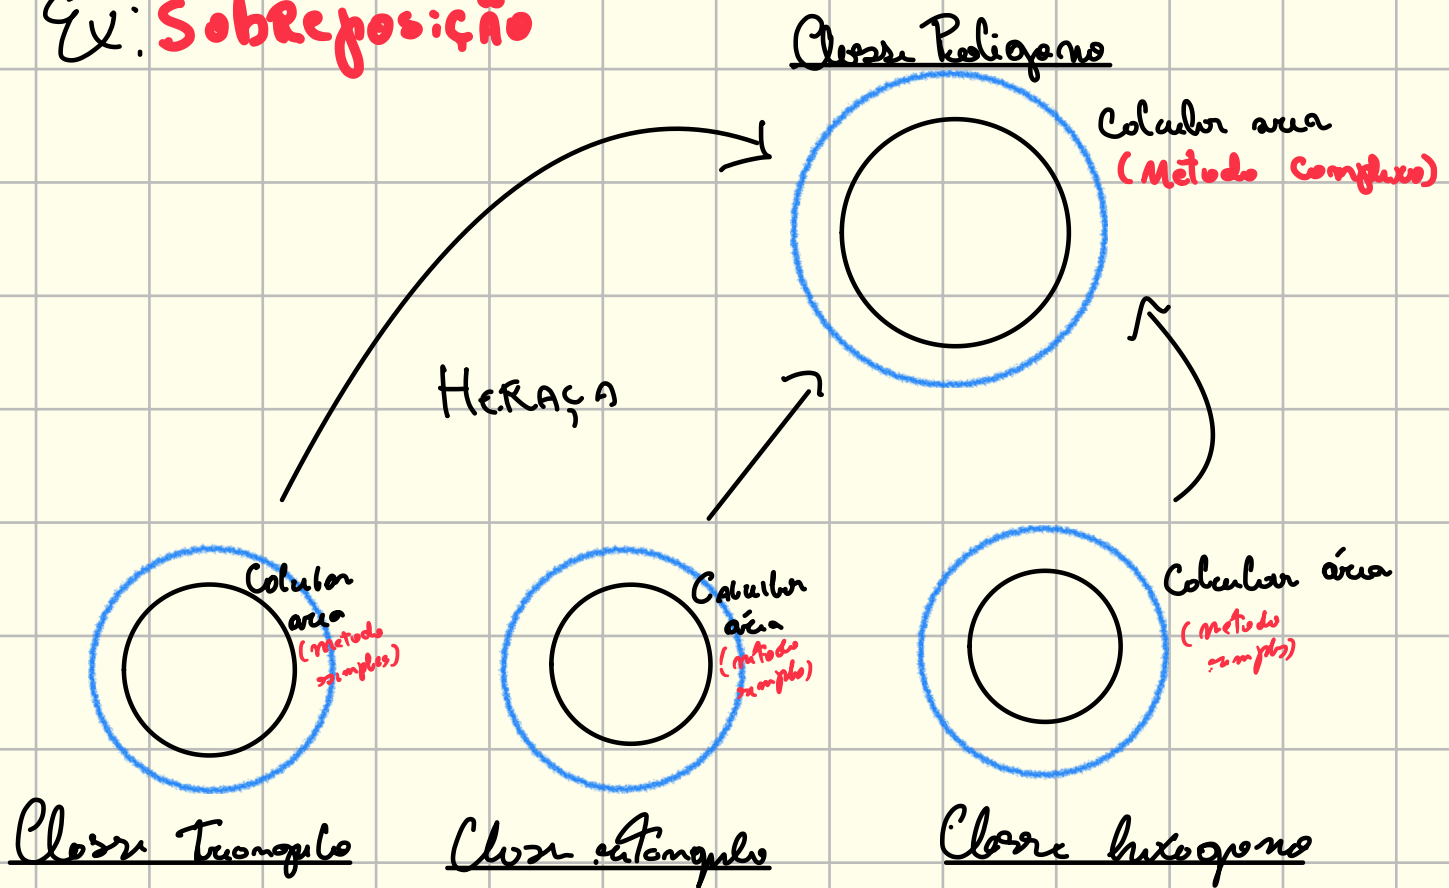 Ex: Sobreposição
Classe Poligono
Calcular area
(Metodo Complexo)
HERAÇA
Calcular
area
(metodo
simples)
Calcular
área
(método
simples)
Calcular área
(método
simples)
Classe Triangulo
Classe retangulo
Classe hexagono